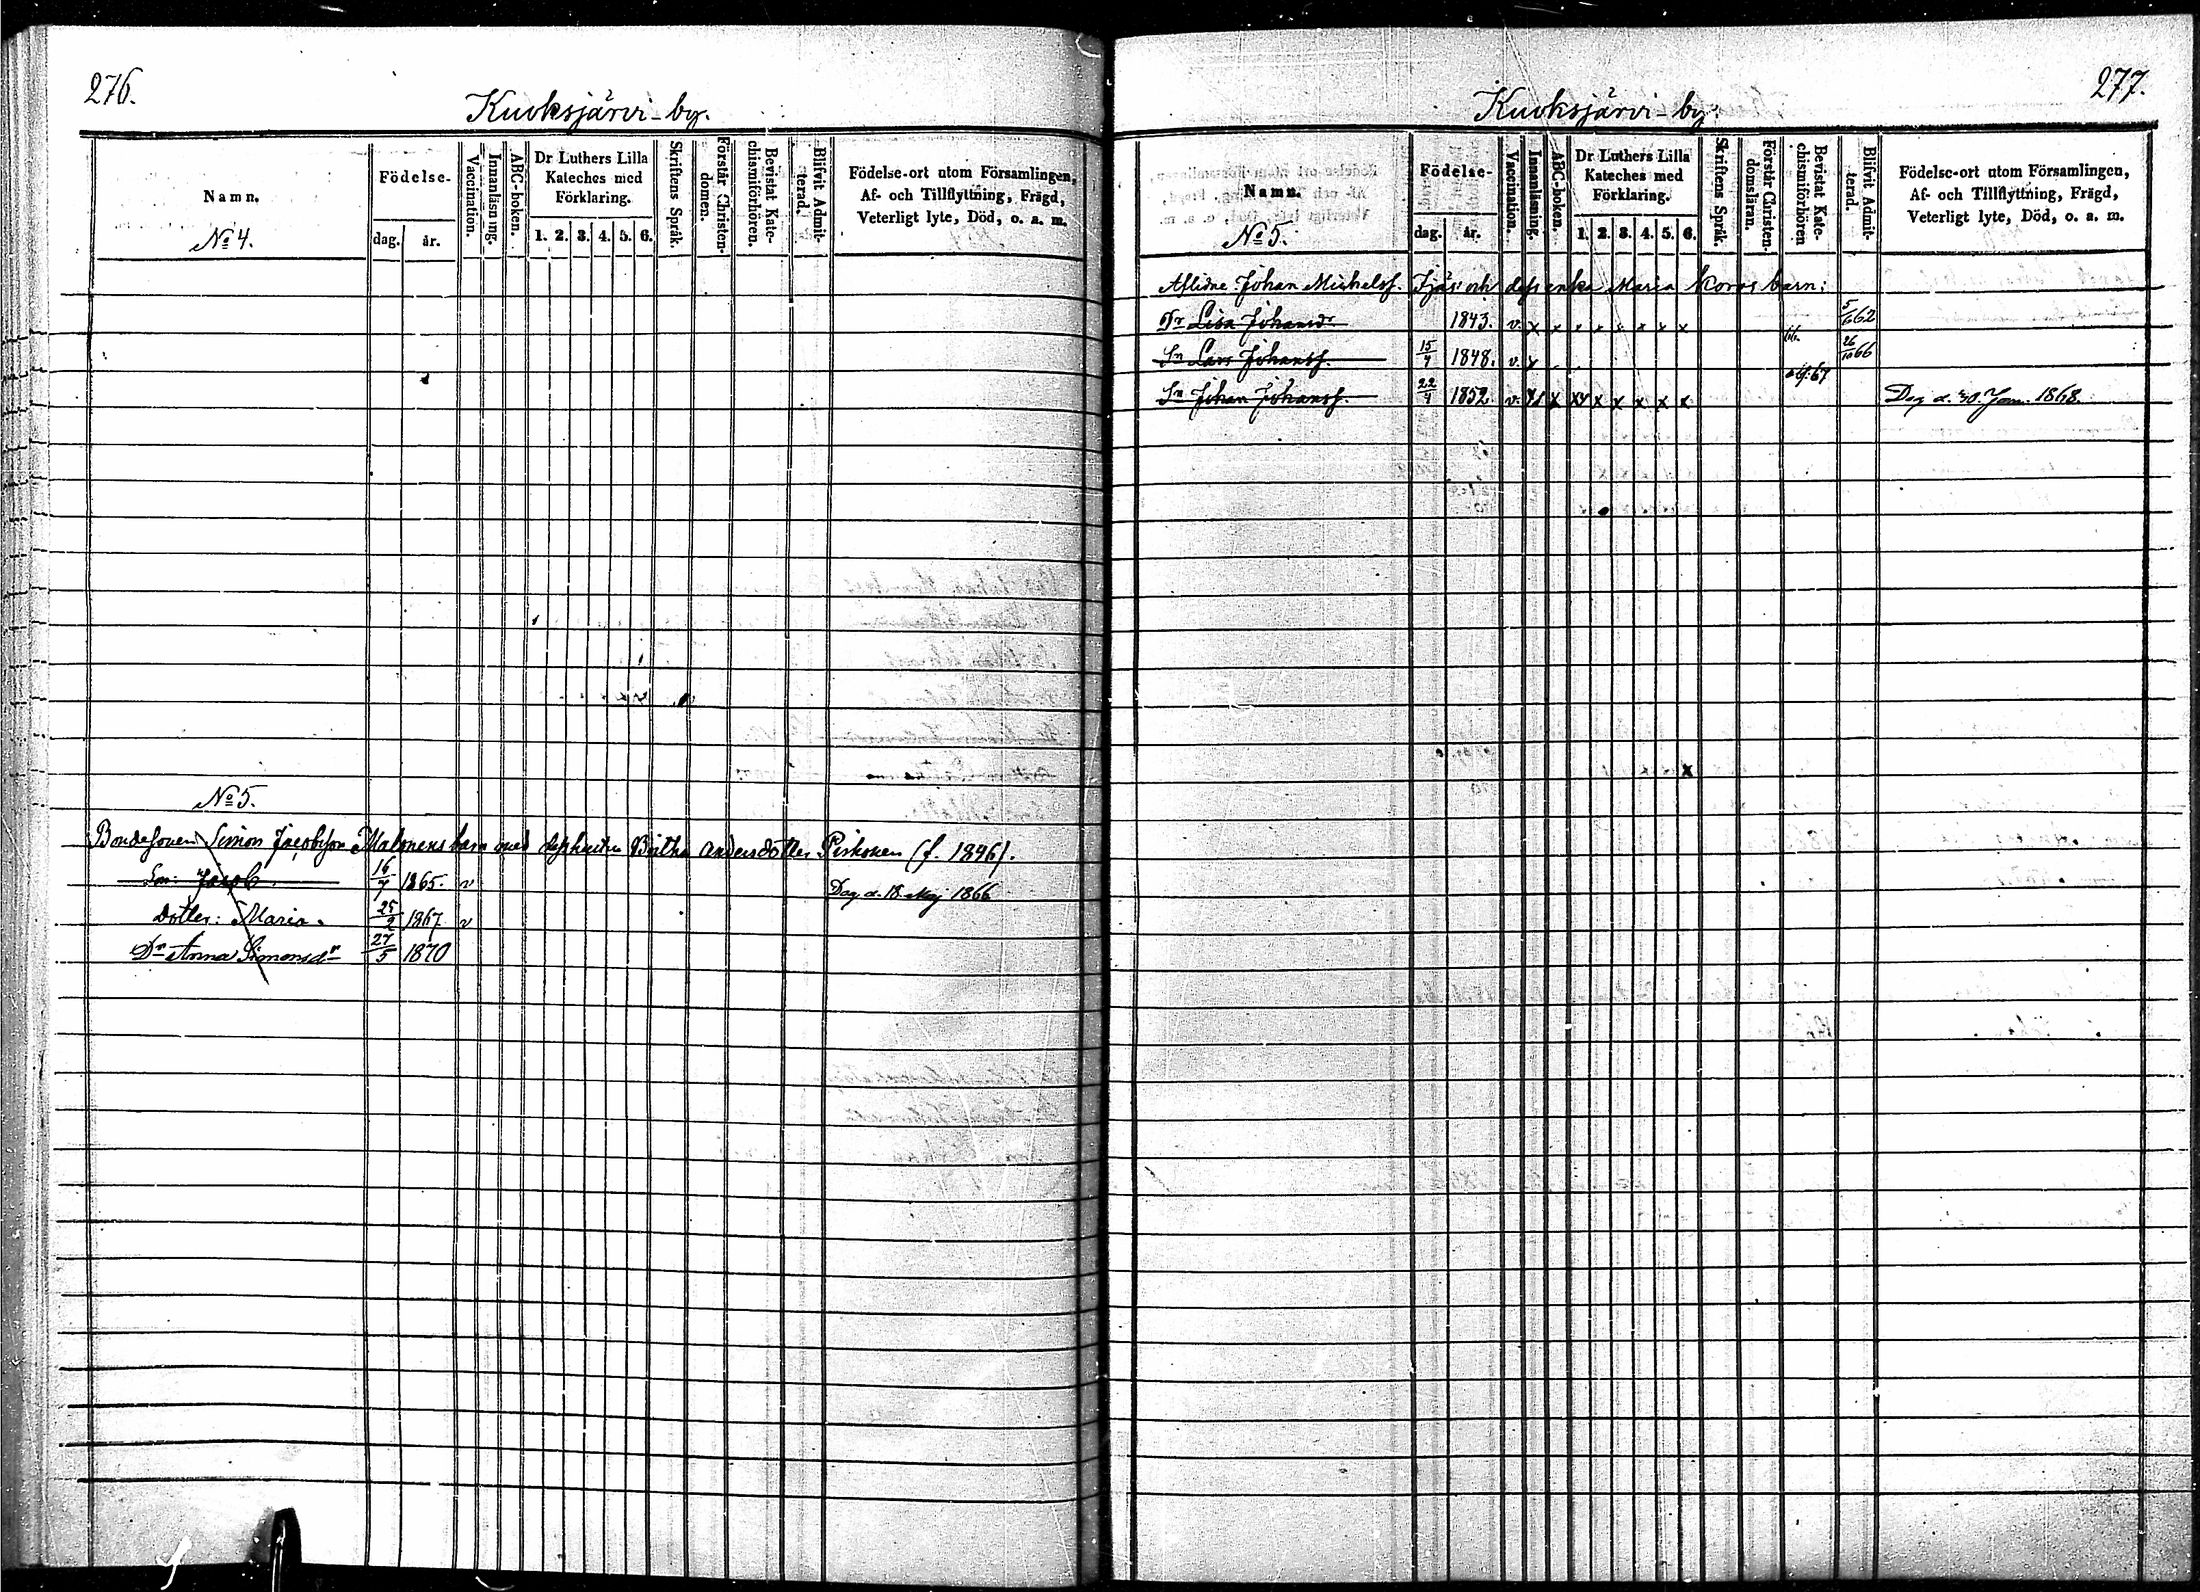 276.
Kuoksjärvi-by.
Namn.
Födelse-
dag. år.
Vaccination.
Innanläsning.
ABC-boken.
Dr Luthers Lilla Kateches med Förklaring.
1. 2. 3. 4. 5. 6.
Skriftens Språk.
Förstår Christen-domen.
Bevistat Kate-chismiförhören.
Blifvit Admit-terad.
Födelse-ort utom Församlingen,
Af- och Tillflyttning, Frägd,
Veterligt lyte, Död, o. a. m.
No 4.
No 5.
Bondesonen Simon Jacobson Malonens barn med dess hustru Birtha Andersdotter Pirhonen (f. 1846).
Son: Jacob. 16/7 1865. v Dog d. 18 Maj 1866
Dotter: Maria. 25/2 1867 v
Dr Anna Simonsdr 27/5 1870
277.
Kuoksjärvi-by.
Namn.
Födelse-
dag. år.
Vaccination.
Innanläsning.
ABC-boken.
Dr Luthers Lilla Kateches med Förklaring.
1. 2. 3. 4. 5. 6.
Skriftens Språk.
Förstår Christen-domsläran.
Bevistat Kate-chismiförhören
Blifvit Admit-terad.
Födelse-ort utom Församlingen,
Af- och Tillflyttning, Frägd,
Veterligt lyte, Död, o. a. m.
No 5.
Aflidne Johan Michelss. och dess enka Maria barn:
Dr Lisa Johansdr 1843. v. x x x x x x x x 5/6 62
Sn Lars Johanss. 15/4 1848. v. x 66. 26/10 66
Sn Johan Johanss. 22/4 1852 v. x x x x x x x 67 Dog d. 30. Jan. 1868.